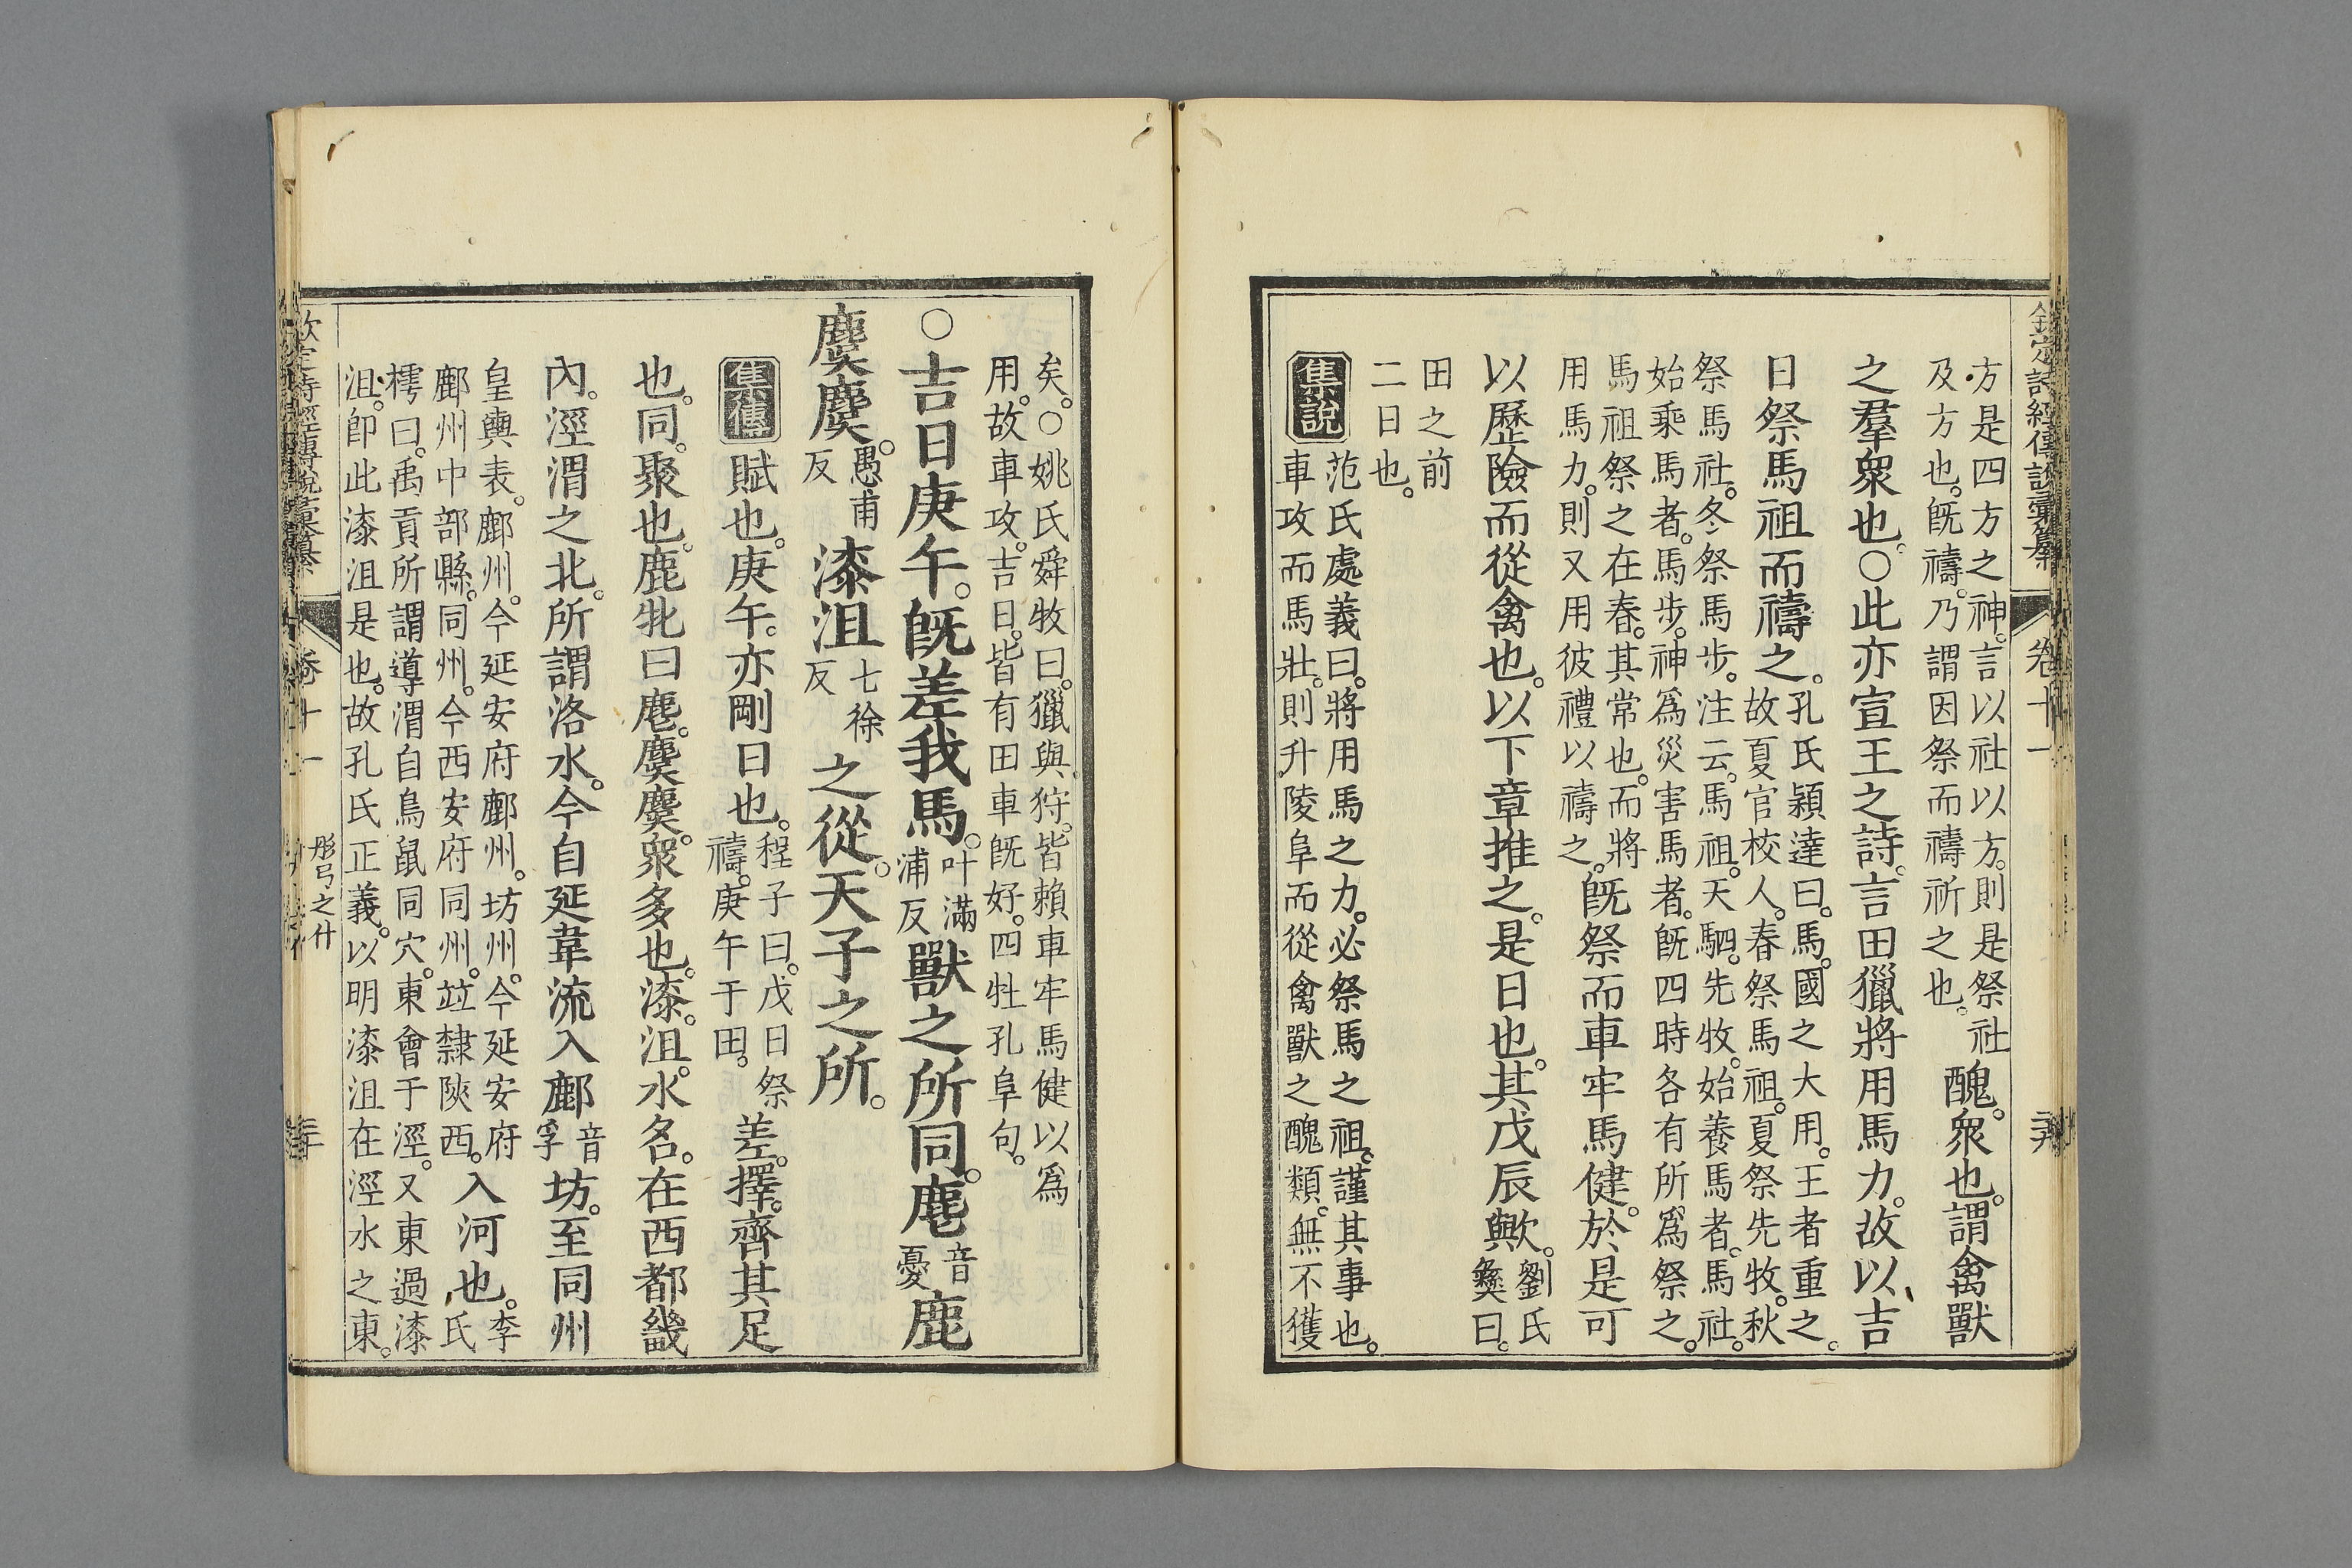 欽定詩經傳說彙纂 卷十一
方是四方之神。言以社以方。則是祭社
及方也。旣禱。乃謂因祭而禱祈之也。
醜。衆也。謂禽獸
之羣衆也。○此亦宣王之詩。言田獵將用馬力。故以吉
日祭馬祖而禱之。
孔氏穎達曰。馬。國之大用。王者重之。
故夏官校人。春祭馬祖。夏祭先牧。秋
祭馬社。冬祭馬步。注云。馬祖。天駟。先牧。始養馬者。馬社。
始乘馬者。馬步。神爲災害馬者。旣四時各有所爲祭之。
馬祖祭之在春。其常也。而將
用馬力。則又用彼禮以禱之。
旣祭而車牢馬健。於是可
以歷險而從禽也。以下章推之。是日也。其戊辰與歟。
劉氏
彝曰。
田之前
二日也。
集說
范氏處義曰。將用馬之力。必祭馬之祖。謹其事也。
車攻而馬壯。則升陵阜而從禽獸之醜類。無不獲
矣。○姚氏舜牧曰。獵與狩。皆賴車牢馬健以爲
用。故車攻。吉日。皆有田車旣好。四牡孔阜句。
○吉日庚午。旣差我馬。
叶滿
浦反
獸之所同。麀
音
憂
鹿
麌麌。
愚甫
反
漆沮
七徐
反
之從。天子之所。
集傳
賦也。庚午。亦剛日也。
程子曰。戊日祭
禱。庚午于田。
差。擇。齊其足
也。同。聚也。鹿牝曰麀。麌麌。衆多也。漆。沮。水名。在西都畿
內。涇渭之北。所謂洛水。今自延韋流入鄜
音
孚
坊。至同州
皇輿表。鄜州。今延安府鄜州。坊州。今延安府
鄜州中部縣。同州。今西安府同州。竝隸陝西。
入河也。
李
氏
樗曰。禹貢所謂導渭自鳥鼠同穴。東會于涇。又東過漆
沮。卽此漆沮是也。故孔氏正義。以明漆沮在涇水之東。
欽定詩經傳說彙纂 卷十一 彤弓之什